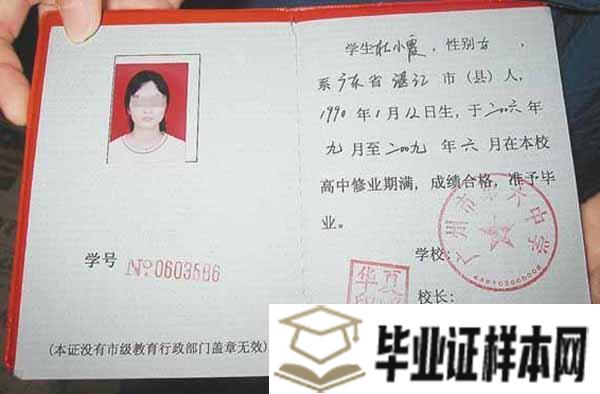 学生杜小霞，性别女，
系广东省湛江市（县）人，
1990年1月12日生，于二〇〇六年
九月至二〇〇九年六月在本校
高中修业期满，成绩合格，准予毕
业。
学校：
广州市第六中学
校长：
学号 No 0603586
（本证没有市级教育行政部门盖章无效）
毕业证样本网